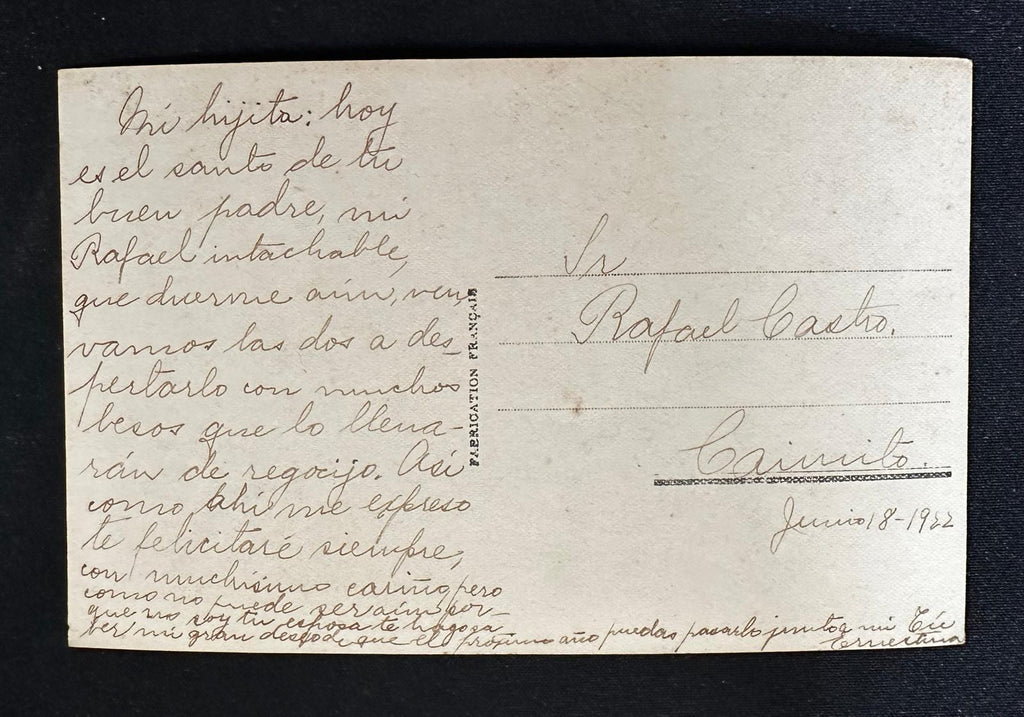 Mi hijita: hoy
es el santo de tu
buen padre, mi
Rafael intachable,
que duerme aún, ven,
vamos las dos a des_
pertarlo con muchos
besos que lo llena-
rán de regocijo. Así
como ahí me expreso
te felicitaré siempre,
con muchísimo cariño, pero
como no puede ser aún por_
que no soy tu esposa te hago sa_
ber mi gran deseo de que el próximo año puedas pasarlo junto a mi Tú
Ernestina
FABRICATION FRANÇAIS
Sr
Rafael Castro.
Caimito.
Junio 18-1922